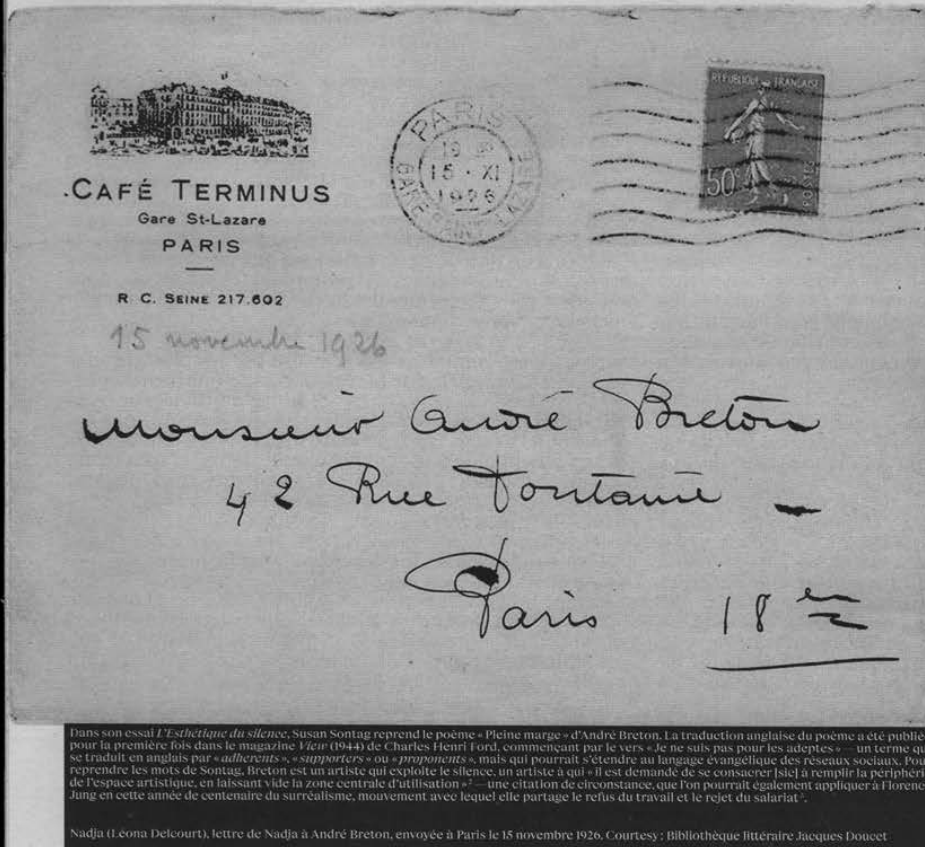 CAFÉ TERMINUS
Gare St-Lazare
PARIS
R. C. SEINE 217.602
PARIS
15 · XI
1926
GARE SAINT-LAZARE
REPUBLIQUE FRANÇAISE
50c
POSTES
15 novembre 1926
Monsieur André Breton
42 Rue Fontaine
Paris 18en
Dans son essai L'Esthétique du silence, Susan Sontag reprend le poème « Pleine marge » d'André Breton. La traduction anglaise du poème a été publié
pour la première fois dans le magazine View (1944) de Charles Henri Ford, commençant par le vers « Je ne suis pas pour les adeptes » — un terme qu
se traduit en anglais par « adherents », « supporters » ou « proponents », mais qui pourrait s'étendre au langage évangélique des réseaux sociaux. Pou
reprendre les mots de Sontag, Breton est un artiste qui exploite le silence, un artiste à qui « il est demandé de se consacrer [sic] à remplir la périphéri
de l'espace artistique, en laissant vide la zone centrale d'utilisation »² — une citation de circonstance, que l'on pourrait également appliquer à Florenc
Jung en cette année de centenaire du surréalisme, mouvement avec lequel elle partage le refus du travail et le rejet du salariat³.
Nadja (Léona Delcourt), lettre de Nadja à André Breton, envoyée à Paris le 15 novembre 1926. Courtesy : Bibliothèque littéraire Jacques Doucet